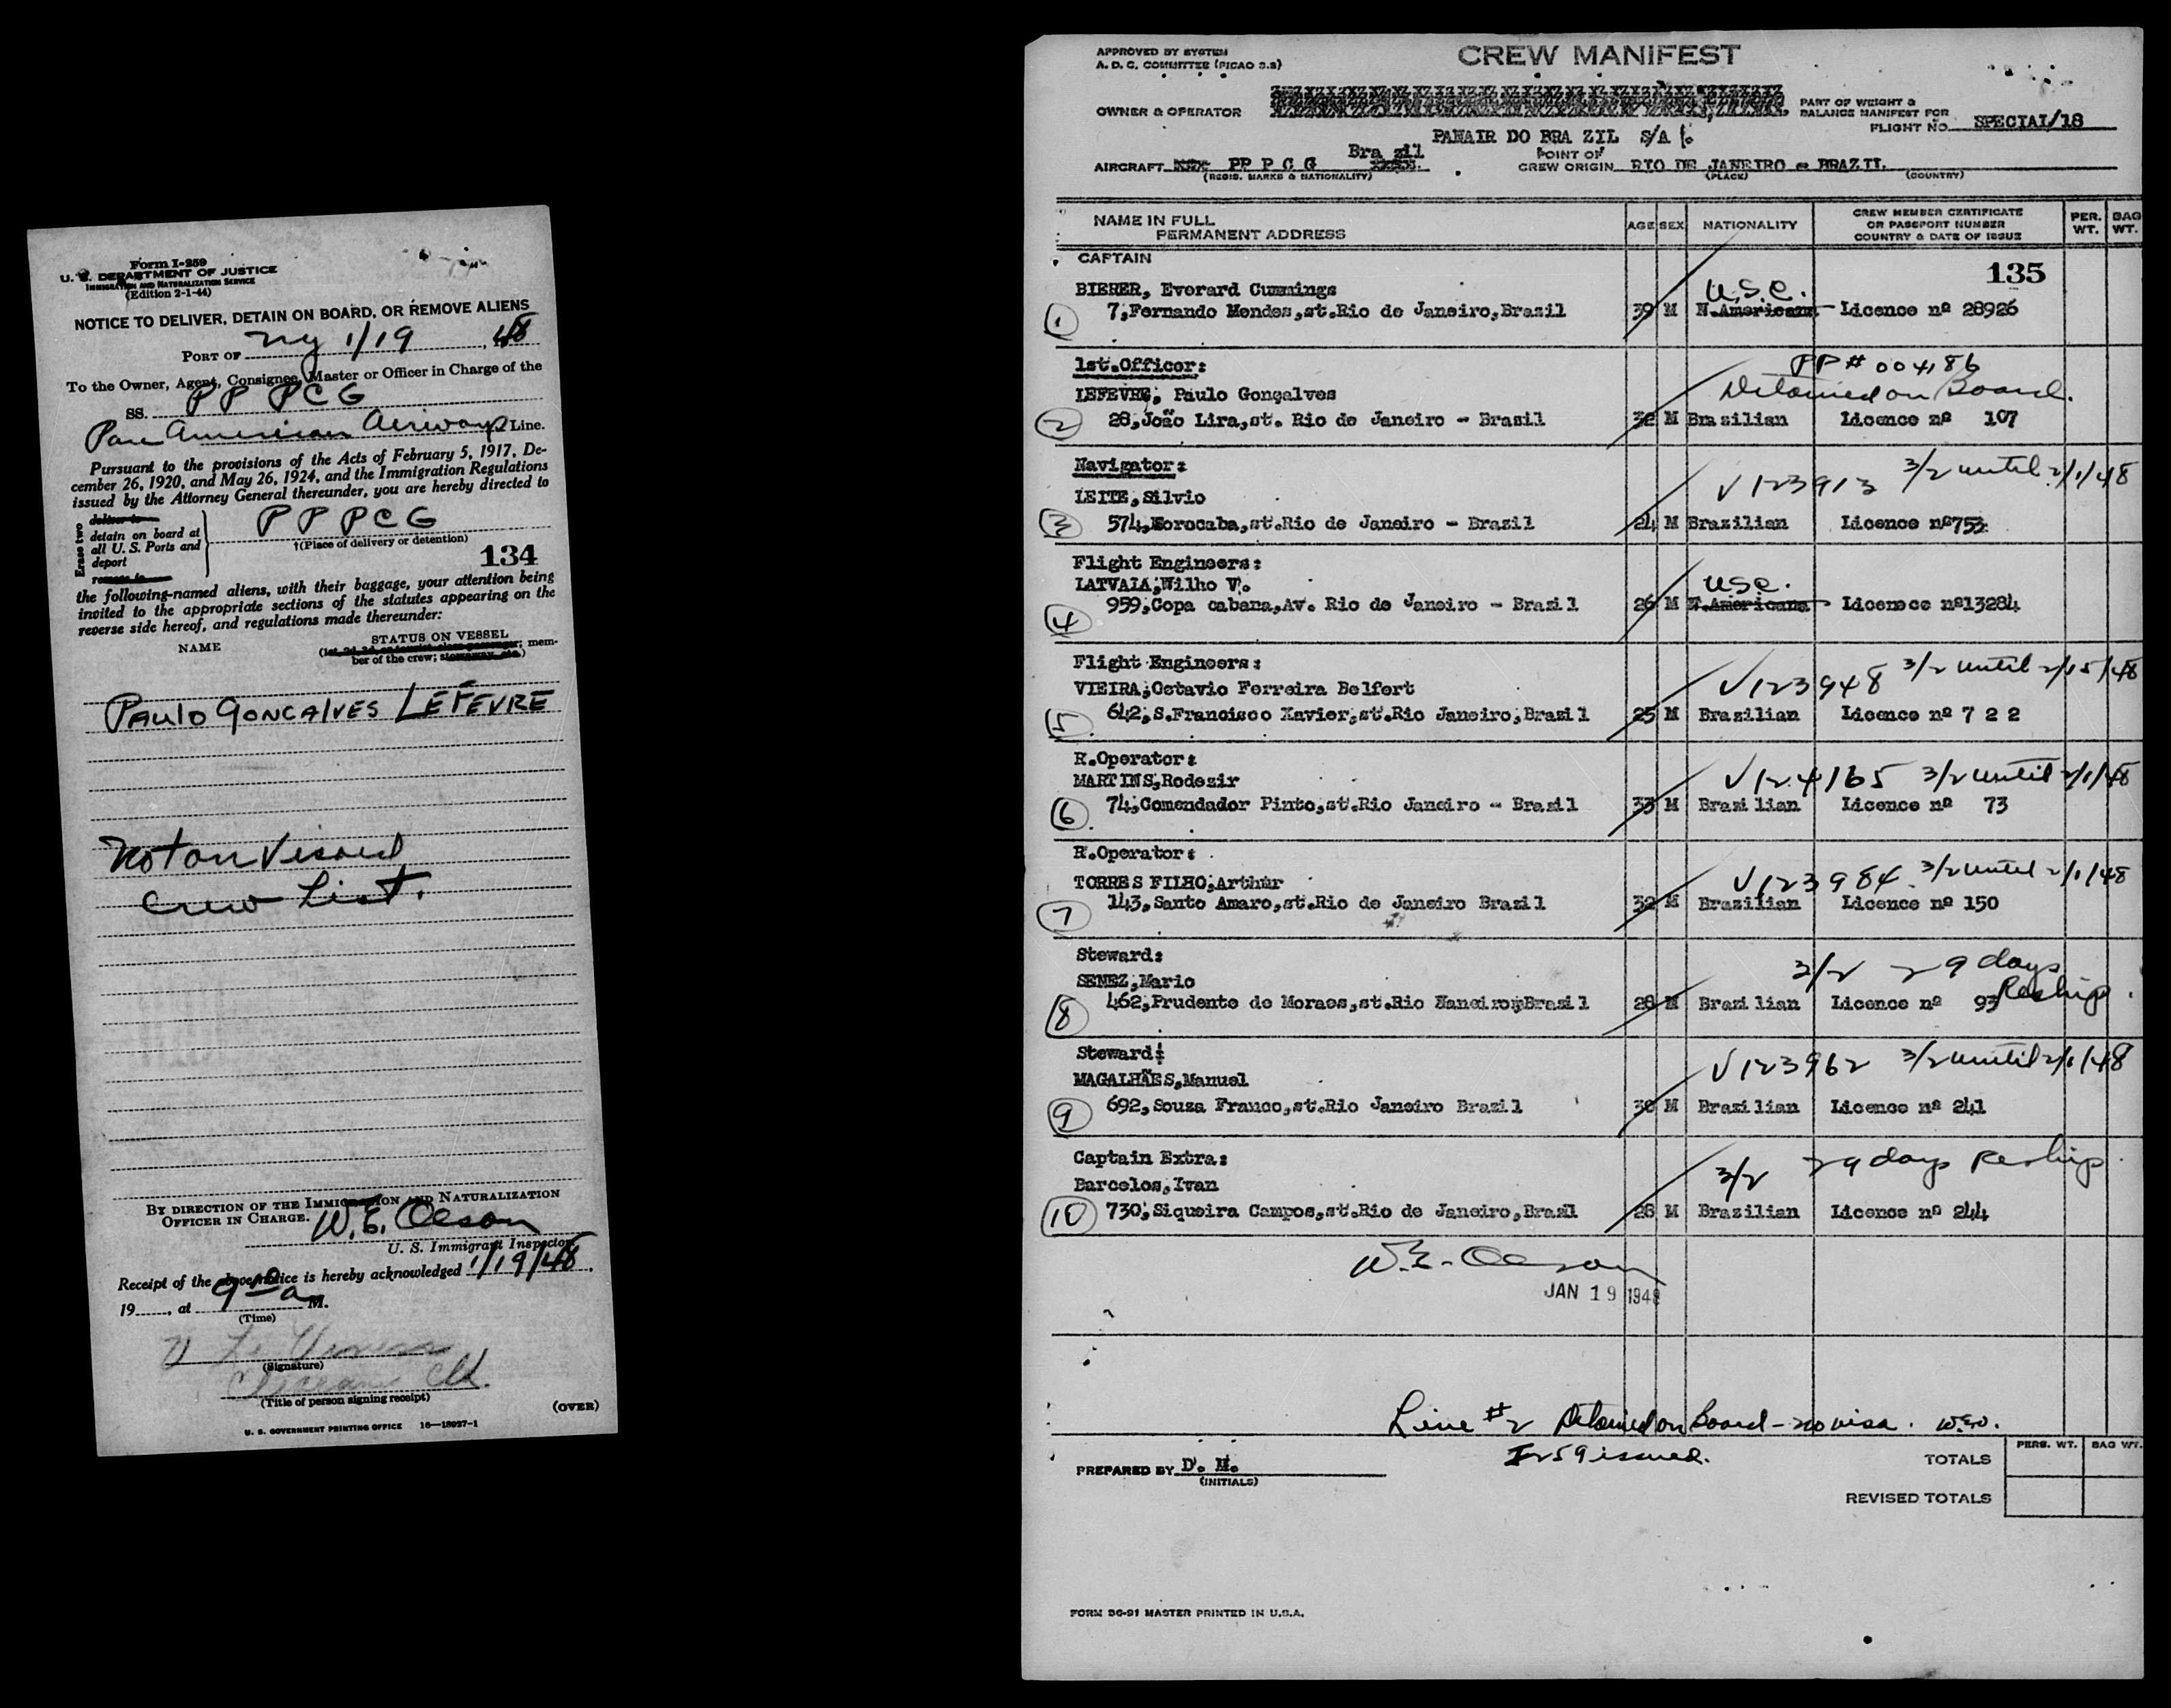 Form I-259
U. S. DEPARTMENT OF JUSTICE
IMMIGRATION AND NATURALIZATION SERVICE
(Edition 2-1-44)
NOTICE TO DELIVER, DETAIN ON BOARD, OR REMOVE ALIENS
PORT OF NY 1/19, 48
To the Owner, Agent, Consignee, Master or Officer in Charge of the
SS. PP PCG
Pan American Airways Line.
Pursuant to the provisions of the Acts of February 5, 1917, De-
cember 26, 1920, and May 26, 1924, and the Immigration Regulations
issued by the Attorney General thereunder, you are hereby directed to
Erase two
deliver to
detain on board at
all U. S. Ports and
deport
remove to
PP PCG
†(Place of delivery or detention)
134
the following-named aliens, with their baggage, your attention being
invited to the appropriate sections of the statutes appearing on the
reverse side hereof, and regulations made thereunder:
NAME
STATUS ON VESSEL
(1st, 2d, 3d, or tourist class passenger; mem-
ber of the crew; stowaway, etc.)
PAULO GONCALVES LEFEVRE
Not on Visaed
Crew List.
BY DIRECTION OF THE IMMIGRATION AND NATURALIZATION
OFFICER IN CHARGE. W. E. Olson
U. S. Immigrant Inspector.
Receipt of the above notice is hereby acknowledged 1/19/48,
19___, at 9 00 a M.
(Time)
(Signature)
(Title of person signing receipt)
(OVER)
U. S. GOVERNMENT PRINTING OFFICE 16—18027-1
APPROVED BY SYSTEM
A. D. C. COMMITTEE (PICAO 3.3)
CREW MANIFEST
OWNER & OPERATOR
PANAIR DO BRA ZIL S/A
PART OF WEIGHT &
BALANCE MANIFEST FOR
FLIGHT NO. SPECIAI/18
AIRCRAFT PP P C G Bra zil
(REGIS. MARKS & NATIONALITY)
POINT OF
CREW ORIGIN RIO DE JANEIRO - BRAZIL
(PLACE) (COUNTRY)
NAME IN FULL
PERMANENT ADDRESS
AGE SEX NATIONALITY
CREW MEMBER CERTIFICATE
OR PASSPORT NUMBER
COUNTRY & DATE OF ISSUE
PER. WT.
BAG WT.
CAPTAIN
135
BIERER, Everard Cummings U.S.C.
1 7,Fernando Mendes,st.Rio de Janeiro,Brazil 39 M N.Americana Licence nº 28926
1st.Officer: PP # 004186
LEFEVRE, Paulo Gonçalves Detained on Board.
2 28,João Lira,st. Rio de Janeiro - Brasil 32 M Brasilian Licence nº 107
Navigator: 3/2 until 2/1/48
LEITE,Silvio V 123913
3 574,Sorocaba,st.Rio de Janeiro - Brazil 24 M Brazilian Licence nº753
Flight Engineers:
LATVALA,Wilho V. USC.
4 959,Copa cabana,Av. Rio de Janeiro - Brasil 26 M N.Americana Licence nº13284
Flight Engineers: 3/2 until 2/15/48
VIEIRA,Octavio Ferreira Belfort V123948
5 642,S.Francisco Xavier,st.Rio Janeiro,Brazil 25 M Brazilian Licence nº 7 2 2
R.Operator:
MARTINS,Rodezir V124165 3/2 until 2/1/48
6 74,Comendador Pinto,st.Rio Janeiro - Brasil 33 M Brazi lian Licence nº 73
R.Operator:
TORRES FILHO,Arthur V123984. 3/2 until 2/1/48
7 143,Santo Amaro,st.Rio de Janeiro Brazil 32 M Brazilian Licence nº 150
Steward:
SENEZ,Mario 3/2 29 days Reship.
8 462,Prudente de Moraes,st.Rio Naneiro,Brasil 28 M Brazilian Licence nº 93
Steward:
MAGALHÃES,Manuel V123962 3/2 until 2/1/48
9 692,Souza Franco,st.Rio Janeiro Brazil 30 M Brazilian Licence nº 241
Captain Extra:
Barcelos,Ivan 3/2 29 days Reship.
10 730,Siqueira Campos,st.Rio de Janeiro,Brazil 28 M Brazilian Licence nº 244
W. E. Olson
JAN 19 1948
Line #2 Detained on Board - no visa. W.E.O.
I 259 issued.
PREPARED BY D. M.
(INITIALS)
PERS. WT. BAG WT.
TOTALS
REVISED TOTALS
FORM DC-91 MASTER PRINTED IN U.S.A.